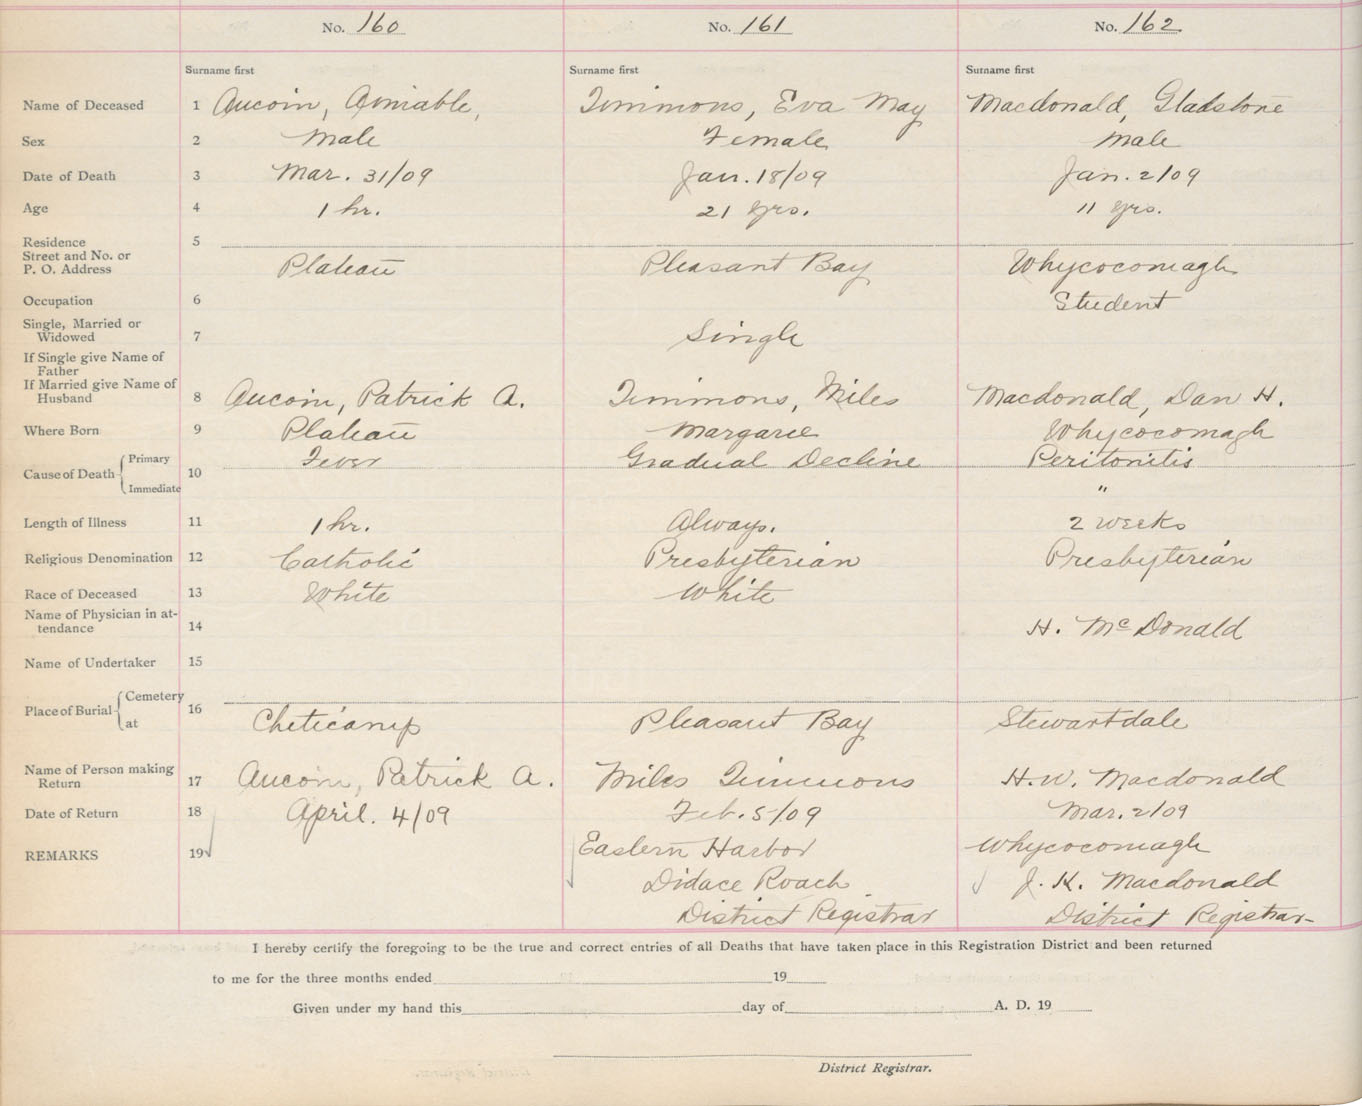 No. 160 No. 161 No. 162
Surname first Surname first Surname first
Name of Deceased 1 Aucoin, Aimable, Timmons, Eva May Macdonald, Gladstone
Sex 2 Male Female Male
Date of Death 3 Mar. 31/09 Jan. 18/09 Jan. 2/09
Age 4 1 hr. 21 yrs. 11 yrs.
Residence 5
Street and No. or
P. O. Address Plateau Pleasant Bay Whycocomagh
Occupation 6 Student
Single, Married or
Widowed 7 Single
If Single give Name of
Father
If Married give Name of
Husband 8 Aucoin, Patrick A. Timmons, Miles Macdonald, Dan H.
Where Born 9 Plateau Margaree Whycocomagh
Cause of Death Primary 10 Fever Gradual Decline Peritonitis
Immediate "
Length of Illness 11 1 hr. Always. 2 weeks
Religious Denomination 12 Catholic Presbyterian Presbyterian
Race of Deceased 13 White White
Name of Physician in at-
tendance 14 H. McDonald
Name of Undertaker 15
Place of Burial Cemetery 16
at Cheticamp Pleasant Bay Stewartdale
Name of Person making
Return 17 Aucoin, Patrick A. Miles Timmons H. W. Macdonald
Date of Return 18 April. 4/09 Feb. 5/09 Mar. 2/09
REMARKS 19 Eastern Harbor Whycocomagh
Didace Roach J. K. Macdonald
District Registrar District Registrar
I hereby certify the foregoing to be the true and correct entries of all Deaths that have taken place in this Registration District and been returned
to me for the three months ended 19
Given under my hand this day of A. D. 19
District Registrar.